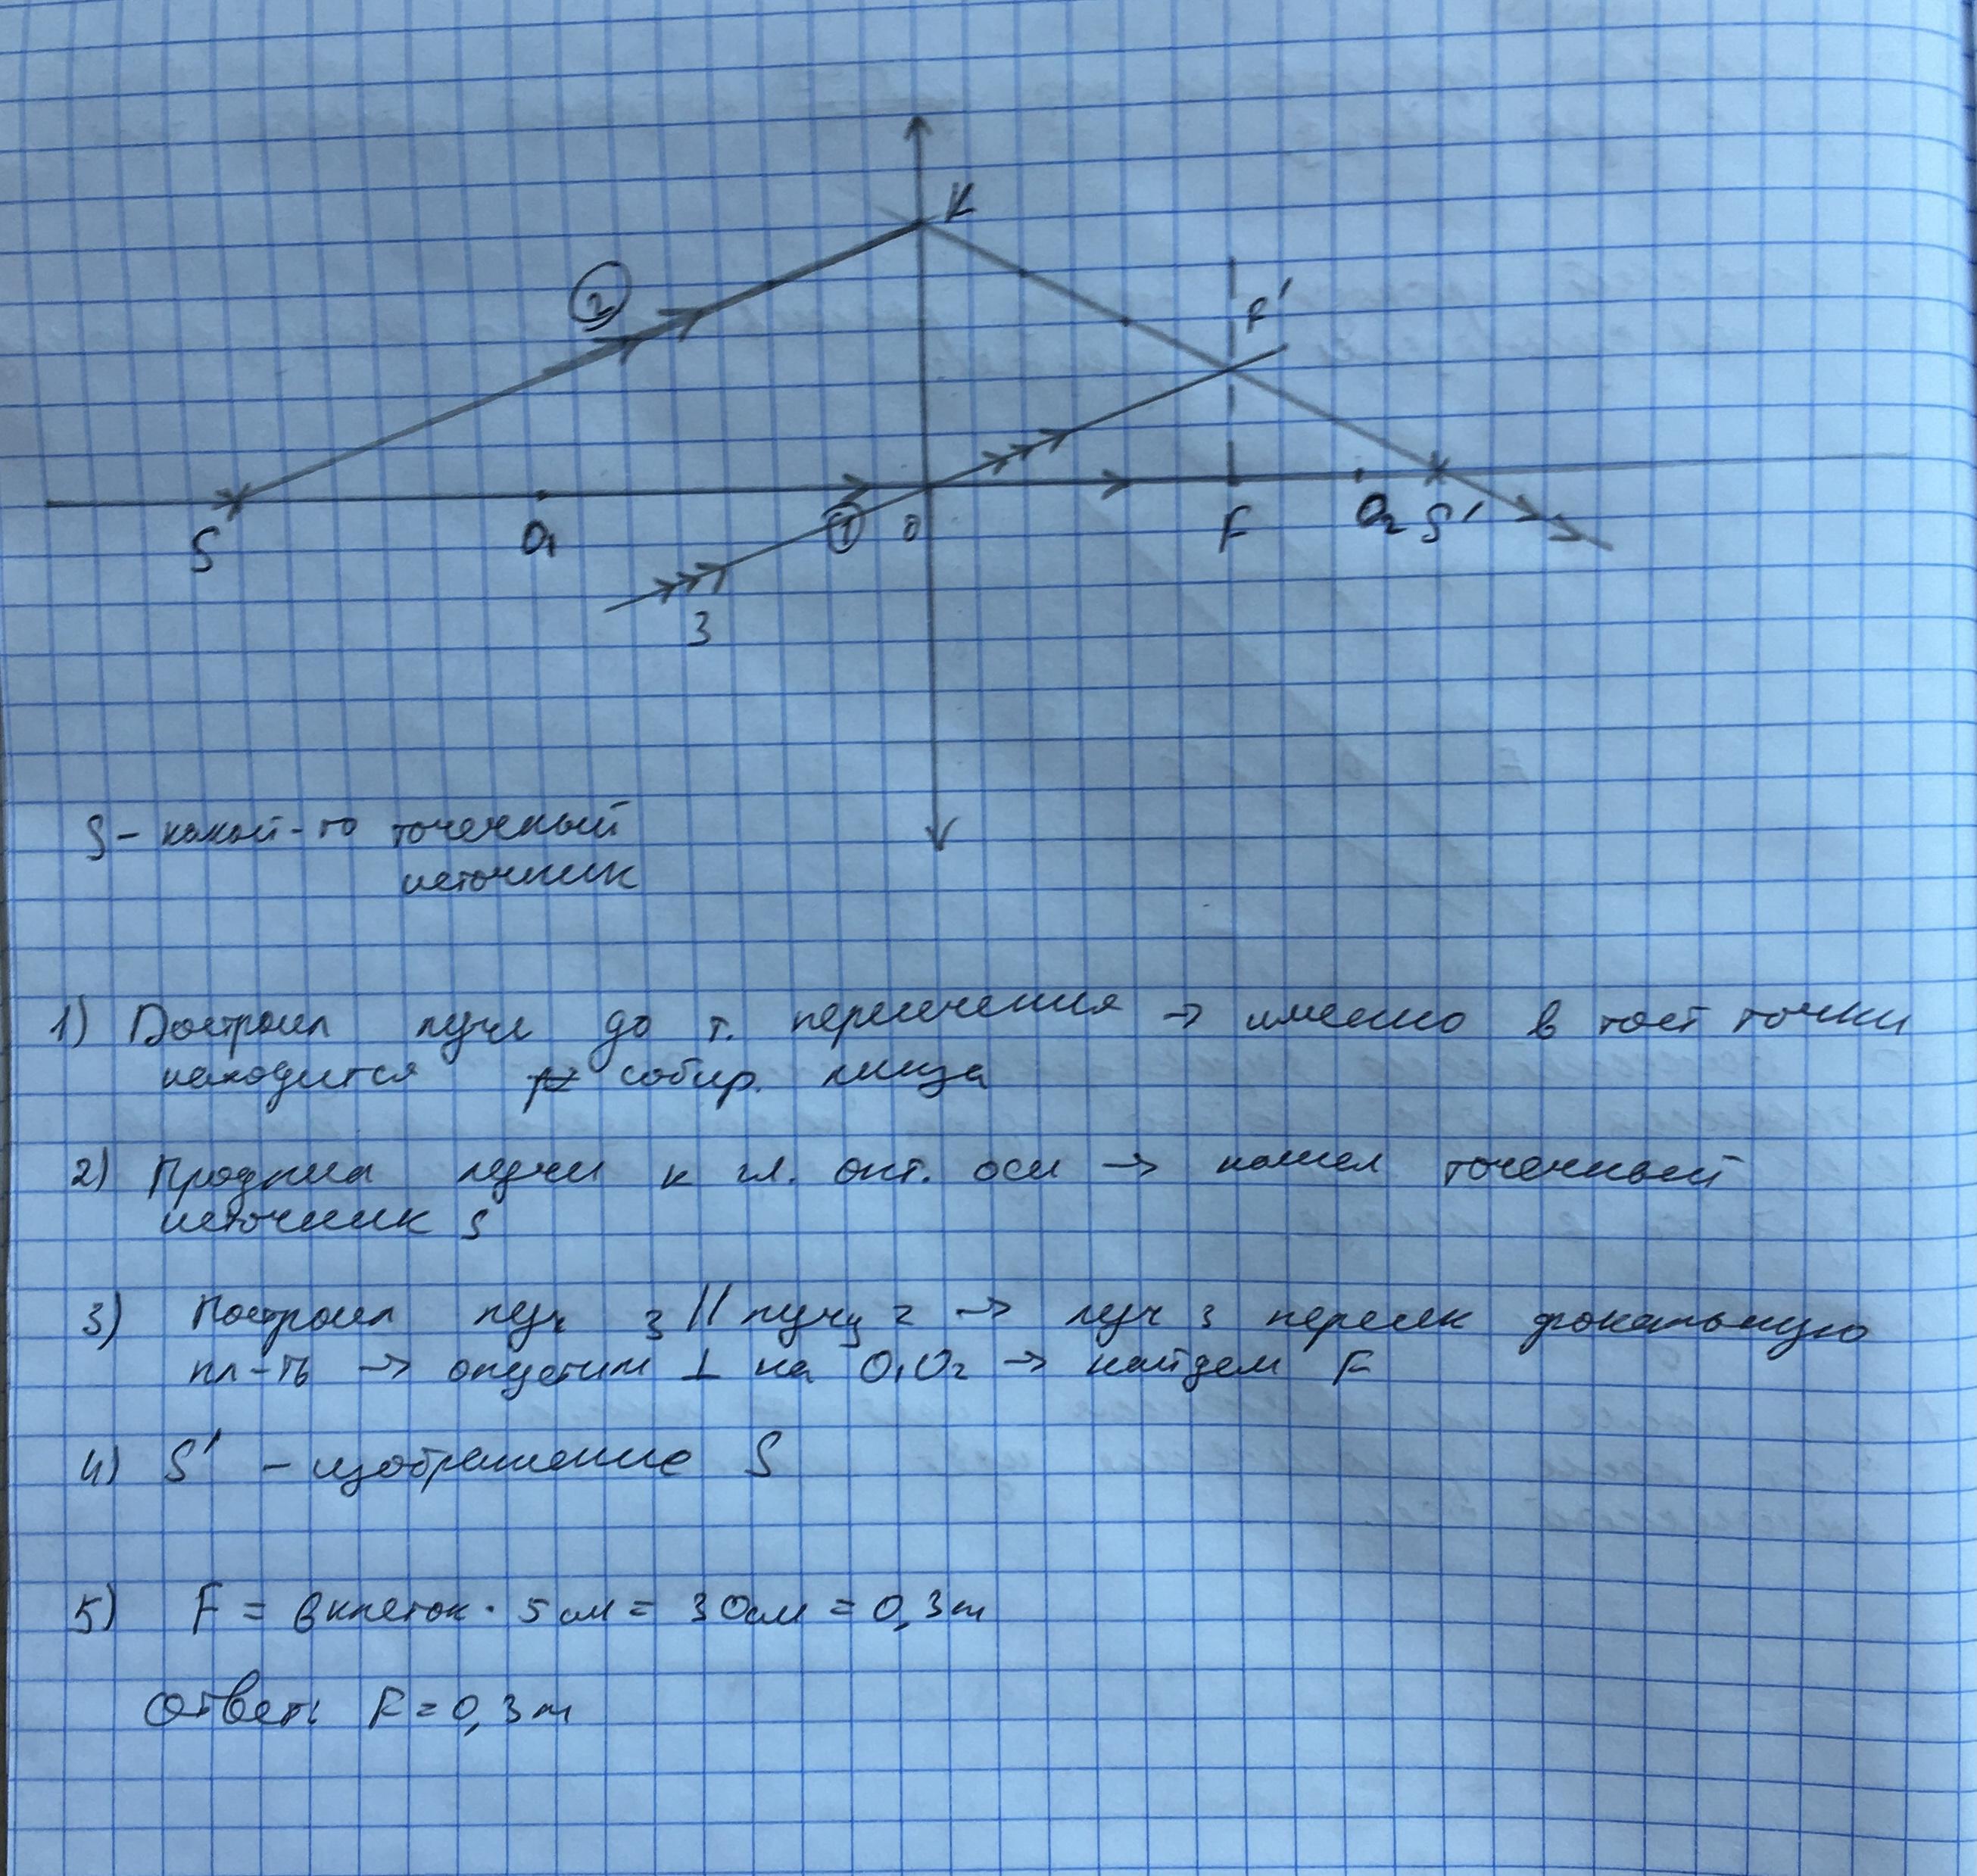 K
2
F'
S
O₁
1
0
F
O₂ S'
3
S - какой-то точечный
источник
1) Построил лучи до т. пересечения → именно в тост точки
находится собир. линза
2) Продлил лучи к гл. опт. оси → нашел точечный
источник S
3) Построил луч 3 || лучу 2 → луч 3 пересек фокальную
пл-ть → опустим ⊥ на O₁O₂ → найдем F
4) S' - изображение S
5) F = 6 клеток · 5 см = 30 см = 0,3 m
Ответ: F = 0,3 m